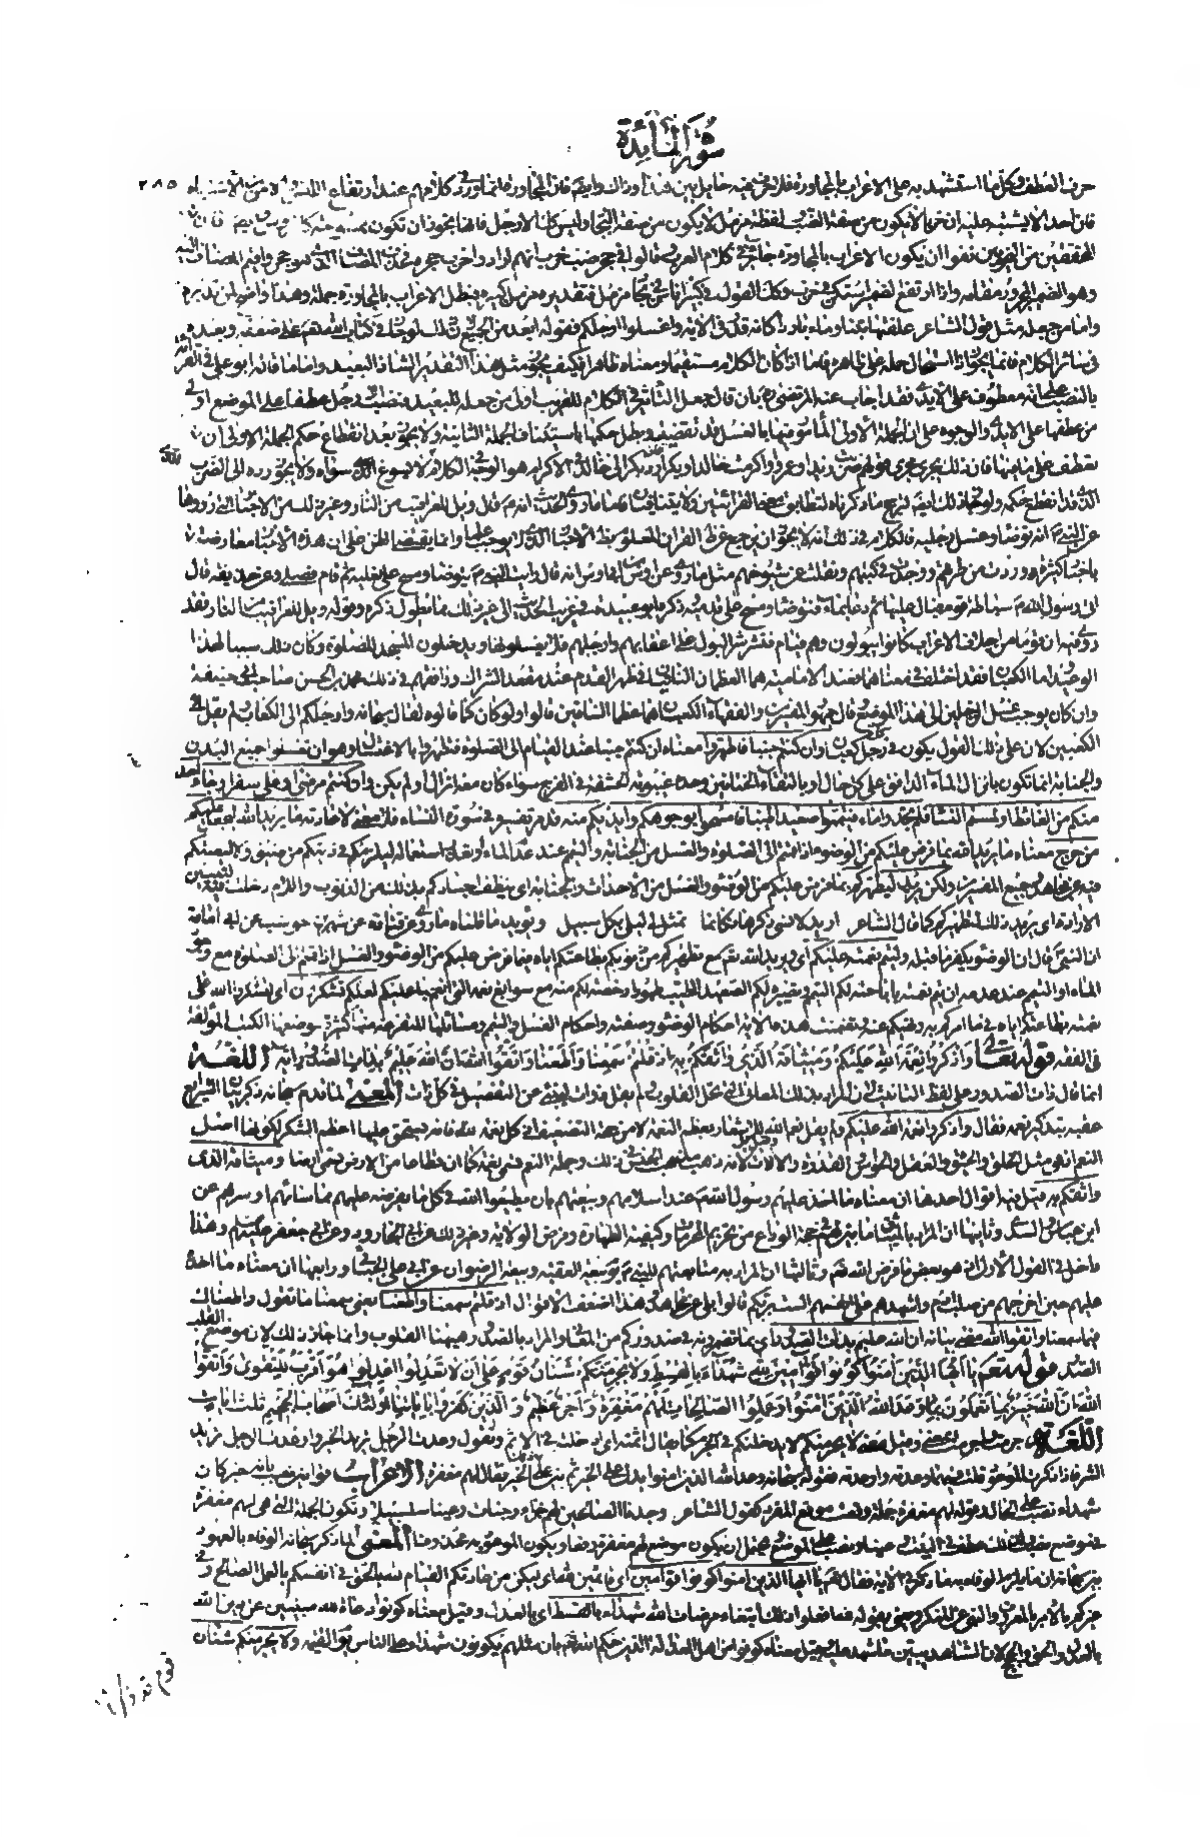 سورة المائدة
٢٨٥
حرف العطف وكل ما استشهد به على الاعراب بالمجاورة فلا حرف فيه حايل بين هذا وذاك وايضا فان المجاورة انما ورد في كلامهم عند ارتفاع اللبس والامن من الاشتباه
فان احدا لا يشتبه عليه ان خربا لا يكون من صفة الضب ولفظة مزمل لا يكون من صفة البجاد وليس كذلك الارجل فانها يجوز ان تكون ممسوحة
المحققين من النحويين نفوا ان يكون الاعراب بالمجاورة جائزا في كلام العرب وقالوا في جحر ضب خرب انهم ارادوا خرب جحره فحذف المضاف
وهو الضمير المجرور مقامه واذا ارتفع الضمير استكن في خرب وكذلك القول في كبير اناس في بجاد مزمل فتقديره مزمل كبيره فبطل الاعراب بالمجاورة جملة وهذا واضح لمن تدبره
واما من جعله مثل قول الشاعر علفتها تبنا وماء باردا كانه قدر في الآية واغسلوا ارجلكم فقوله ابعد من الجميع لان مثل ذلك لو جاز في كتاب الله تعالى على ضعفه وبعده
في سائر الكلام فانما يجوز اذا استحال حمله على ظاهره فاما اذا كان الكلام مستقيما ومعناه ظاهرا فكيف يجوز مثل هذا التقدير الشاذ البعيد واما ما قاله ابو علي في القراءة
بالنصب على انه معطوف على الايدي فقد اجاب عنه المرتضى ره بان قال جعل التأثير في الكلام للقريب اولى من جعله للبعيد فنصب الارجل عطفا على الموضع اولى
من عطفها على الايدي والوجوه على ان الجملة الاولى المأمور فيها بالغسل قد نقضت وبطل حكمها باستيناف الجملة الثانية ولا يجوز بعد انقطاع حكم الجملة الاولى ان
تعطف على ما فيها فان ذلك يجري مجرى قولهم ضربت زيدا وعمرا واكرمت خالدا وبكرا فان رد بكر الى خالد في الاكرام هو الوجه في الكلام الذي لا يسوغ سواه ولا يجوز رده الى الضرب
الذي قد انقطع حكمه ولو جاز ذلك ايضا لترجح ما ذكرناه لتطابق معنى القراءتين ولا يتنافيان فاما ما روي في الحديث انه م قال ويل للعراقيب من النار وغير ذلك من الاخبار التي رووها
عن النبي م انه توضأ وغسل رجليه فالكلام في ذلك انه لا يجوز ان يرجع عن ظاهر القرآن المعلوم بظاهر الاخبار الذي لا يوجب علما وانما يقتضي الظن على ان هذه الاخبار معارضة
باخبار كثيرة وردت من طرقهم ووجدت في كتبهم ونقلت عن شيوخهم مثل ما روي عن اوس بن اوس انه قال رايت النبي م توضأ ومسح على نعليه ثم قام فصلى وعن حذيفة قال
اتى رسول الله م سباطة قوم فبال عليها ثم دعا بماء فتوضأ ومسح على قدميه ذكره ابو عبيدة في غريب الحديث الى غير ذلك مما يطول ذكره وقوله ويل للعراقيب من النار فقد
روي فيه ان قوما من اجلاف الاعراب كانوا يبولون وهم قيام فتشرشر البول على اعقابهم وارجلهم فلا يغسلونها ويدخلون المسجد للصلوة وكان ذلك سببا لهذا
الوعيد واما الكعبان فقد اختلف في معناهما فعند الامامية هما العظمان النابتان في ظهر القدم عند معقد الشراك ووافقهم في ذلك محمد بن الحسن صاحب ابي حنيفة
وان كان يوجب غسل الرجلين الى هذا الموضع وقال جمهور المفسرين والفقهاء الكعبان هما عظما الساقين قالوا ولو كان كما قالوه لقال سبحانه وارجلكم الى الكعاب ولم يقل الى
الكعبين لان على ذلك القول يكون في كل رجل كعبان وان كنتم جنبا فاطهروا معناه ان كنتم جنبا عند القيام الى الصلوة فتطهروا بالاغتسال وهو ان تغسلوا جميع البدن
والجنابة انما تكون بانزال الماء الدافق على كل حال او بالتقاء الختانين وحده غيبوبة الحشفة في الفرج سواء كان معه انزال او لم يكن وان كنتم مرضى او على سفر او جاء احد
منكم من الغائط او لمستم النساء فلم تجدوا ماء فتيمموا صعيدا طيبا فامسحوا بوجوهكم وايديكم منه قد مر تفسيره في سورة النساء فلا معنى لاعادته ما يريد الله ليجعل عليكم
من حرج معناه ما يريد الله بما فرض عليكم من الوضوء اذا قمتم الى الصلوة والغسل من الجنابة والتيمم عند عدم الماء او تعذر استعماله ليلزمكم في دينكم من ضيق ولا ليعنتكم
فيه عن مجاهد وجميع المفسرين ولكن يريد ليطهركم بما فرض عليكم من الوضوء والغسل من الاحداث والجنابة اي ينظف اجسادكم بذلك من الذنوب واللام دخلت فيه لتبيين
الارادة اي يريد ذلك لتطهيركم كما قال الشاعر اريد لانسى ذكرها فكانما تمثل لي ليلى بكل سبيل ويؤيد ما قلناه ما روي عن قتادة عن شهر بن حوشب عن ابي امامة
ان النبي م قال ان الوضوء يكفر ما قبله وليتم نعمته عليكم اي ويريد الله تعالى مع تطهيركم من ذنوبكم بطاعتكم اياه فيما فرض عليكم من الوضوء والغسل اذا قمتم الى الصلوة مع وجود
الماء او التيمم عند عدمه ان يتم نعمته باباحته لكم التيمم وتصييره لكم الصعيد الطيب طهورا رخصة لكم منه مع سوابغ نعمه التي انعم بها عليكم لعلكم تشكرون اي لتشكروا الله على
نعمته بطاعتكم اياه فيما امركم به ونهيكم عنه وتضمنت هذه الآية احكام الوضوء وصفته واحكام الغسل والتيمم ومسائلها المتفرعة منها كثيرة موضعها الكتب المؤلفة
في الفقه قوله تعالى واذكروا نعمة الله عليكم وميثاقه الذي واثقكم به اذ قلتم سمعنا واطعنا واتقوا الله ان الله عليم بذات الصدور آية اللغة
انما قال ذات الصدور على لفظ التانيث لان المراد بذلك المعاني التي تحل القلوب ولم يقل ذوات لينبئ عن التفصيل في كل ذات المعنى لما قدم سبحانه ذكر بيان الشرايع
عقبه بتذكير نعمه فقال واذكروا نعمة الله عليكم ولم يقل نعم الله للاشعار بعظم النعمة لا من جهة التضعيف اذ كل نعمة لله فانه يستحق عليها اعظم الشكر لكونها اصل
النعم انه مثل الخلق والحيوة والعقل والحواس والقدرة والآلات لانه ذهب مذهب الجنس في ذلك وجملة النعم تسمى نعمة كما ان قطاعا من الارض تسمى ارضا وميثاقه الذي
واثقكم به قيل فيه اقوال احدها ان معناه ما اخذ عليهم رسول الله ص عند اسلامهم وبيعتهم بان يطيعوا الله في كل ما يفرضه عليهم مما ساءهم او سرهم عن
ابن عباس والسدي وثانيها ان المراد بالميثاق ما بين لهم في حجة الوداع من تحريم المحرمات وكيفية الطهارة وفرض الولاية وغير ذلك عن ابي الجارود عن ابي جعفر عليه السلم وهذا
داخل في القول الاول اذ هو بعض ما فرض الله تعالى وثالثها ان المراد به متابعتهم للنبي م يوم بيعة العقبة وبيعة الرضوان عن ابي علي الجبائي ورابعها ان معناه ما اخذه
عليهم حين اخرجهم من صلب آدم واشهدهم على انفسهم الست بربكم قالوا بلى عن مجاهد وهذا اضعف الاقوال اذ قلتم سمعنا واطعنا يعني سمعنا ما تقول واطعناك
فيما سمعنا واتقوا الله معنى بيانه ان الله عليم بذات الصدور اي بما تضمرونه في صدوركم من المعاني والمراد بالصدور ههنا القلوب وانما جاز ذلك لان موضع القلب
الصدر قوله تعالى يا ايها الذين آمنوا كونوا قوامين لله شهداء بالقسط ولا يجرمنكم شنآن قوم على ان لا تعدلوا اعدلوا هو اقرب للتقوى واتقوا
الله ان الله خبير بما تعملون وعد الله الذين آمنوا وعملوا الصالحات لهم مغفرة واجر عظيم والذين كفروا وكذبوا بآياتنا اولئك اصحاب الجحيم ثلث آيات
اللغة
شهداء نصب على الحال وقوله لهم مغفرة جملة وقعت موقع المفرد كقول الشاعر وجدنا الصالحين لهم جزاء وجنات وعينا سلسبيلا وتكون الجملة التي هي لهم مغفرة
في موضع نصب ولذلك عطف في البيت وعينا ونصب على الموضع ويحتمل ان يكون موضع لهم مغفرة رفعا ويكون الموعود به محذوفا المعنى لما ذكر سبحانه الوفاء بالعهود
بين سبحانه ان مما يلزم الوفاء به ما ذكر في الآية فقال يا ايها الذين آمنوا كونوا قوامين اي قائمين لله اي ليكن من عادتكم القيام لله بالحق في انفسكم بالعمل الصالح وفي
غيركم بالامر بالمعروف والنهي عن المنكر ويعني بقوله لله افعلوا ذلك ابتغاء مرضات الله شهداء بالقسط اي بالعدل وقيل معناه كونوا دعاة لله مبينين عن دين الله
بالعدل والحق والحجج لان الشاهد يبين ما شهد عليه وقيل معناه كونوا من اهل العدالة الذين حكم الله تعالى بان مثلهم يكونون شهداء على الناس يوم القيمة ولا يجرمنكم شنآن